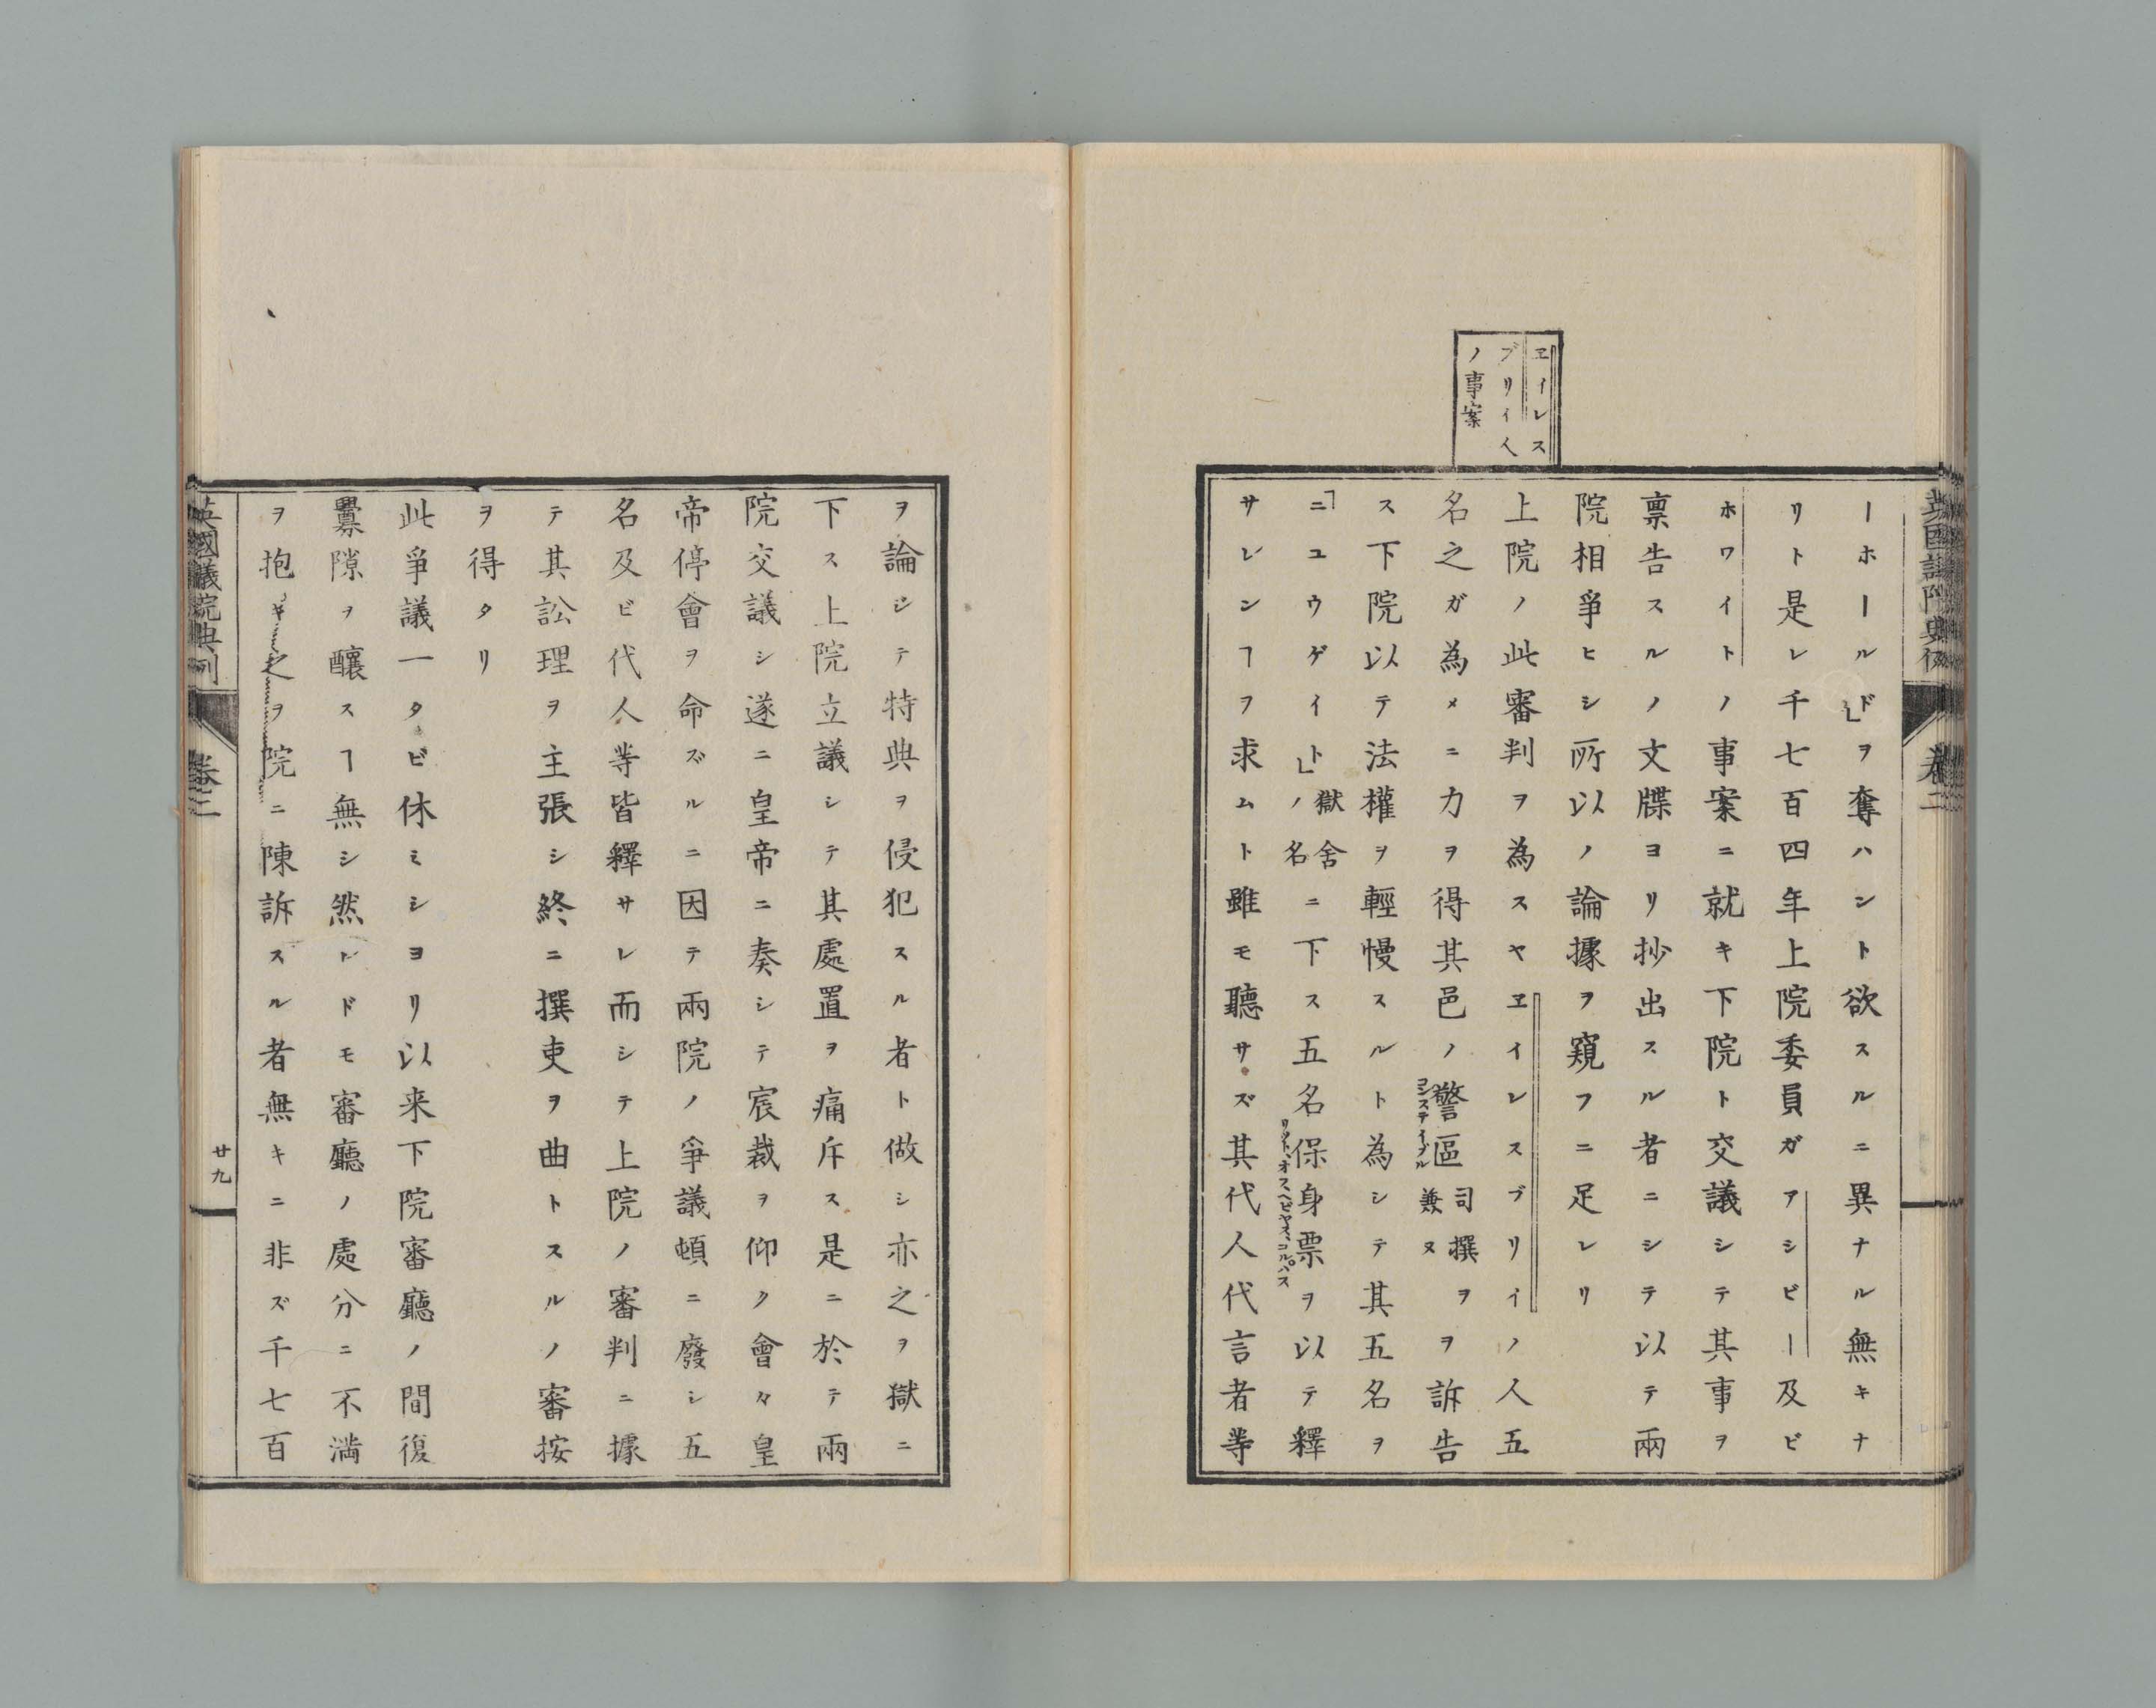 英國議院典例
卷二
ーホールド」ヲ奪ハント欲スルニ異ナル無キナ
リト是レ千七百四年上院委員ガアシビー及ビ
ホワイトノ事案ニ就キ下院ト交議シテ其事ヲ
稟告スルノ文牒ヨリ抄出スル者ニシテ以テ兩
院相爭ヒシ所以ノ論據ヲ窺フニ足レリ
ヱイレス
ブリイ人
ノ事案
上院ノ此審判ヲ為スヤヱイレスブリイノ人五
名之ガ為メニ力ヲ得其邑ノ警區司撰ヲ兼ヌヲ訴告
コンステイブル
ス下院以テ法權ヲ輕慢スルト為シテ其五名ヲ
「ニユウゲイト」獄舍ノ名ニ下ス五名保身票ヲ以テ釋
リット、オス、ヘビヤス、コルパス
サレンヿヲ求ムト雖モ聽サズ其代人代言者等
ヲ論シテ特典ヲ侵犯スル者ト做シ亦之ヲ獄ニ
下ス上院立議シテ其處置ヲ痛斥ス是ニ於テ兩
院交議シ遂ニ皇帝ニ奏シテ宸裁ヲ仰ク會々皇
帝停會ヲ命ズルニ因テ兩院ノ爭議頓ニ廢シ五
名及ビ代人等皆釋サレ而シテ上院ノ審判ニ據
テ其訟理ヲ主張シ終ニ撰吏ヲ曲トスルノ審按
ヲ得タリ
此爭議一タビ休ミシヨリ以来下院審廳ノ間復
釁隙ヲ釀スヿ無シ然レドモ審廳ノ處分ニ不満
ヲ抱キ之ヲ院ニ陳訴スル者無キニ非ズ千七百
英國議院典例
卷二
廿九